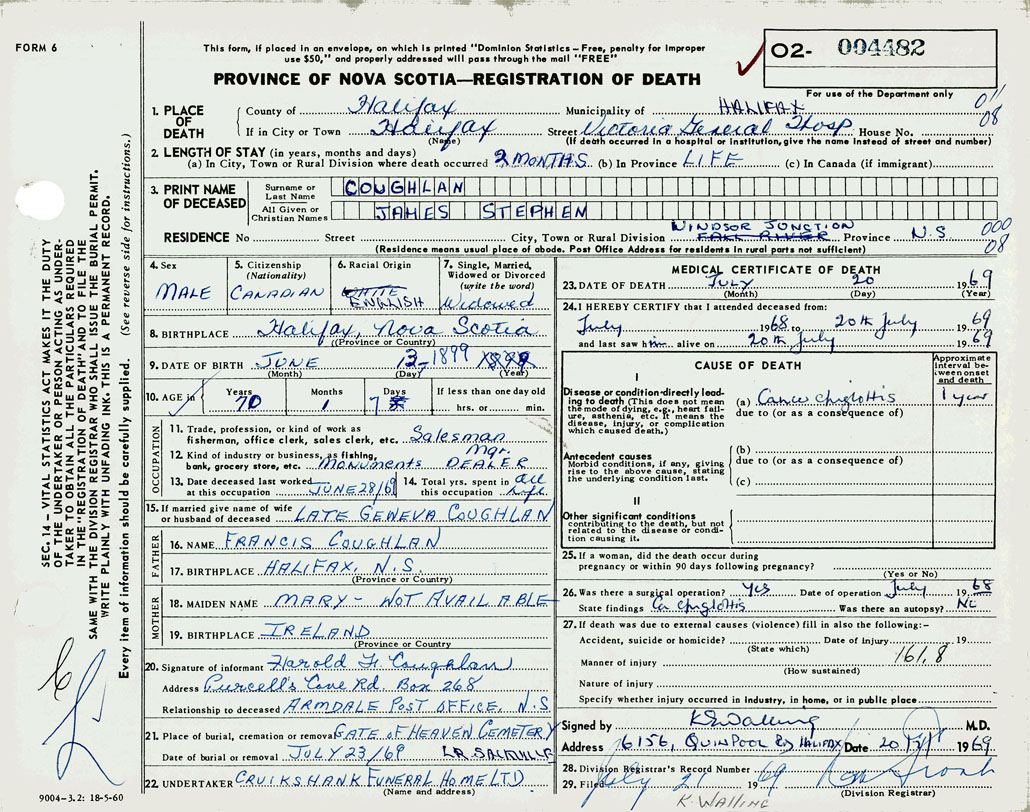 FORM 6
This form, if placed in an envelope, on which is printed "Dominion Statistics – Free, penalty for improper
use $50," and properly addressed will pass through the mail "FREE"
PROVINCE OF NOVA SCOTIA—REGISTRATION OF DEATH
02- 004482
For use of the Department only
SEC. 14 – VITAL STATISTICS ACT MAKES IT THE DUTY
OF THE UNDERTAKER OR PERSON ACTING AS UNDER-
TAKER TO OBTAIN ALL THE PARTICULARS REQUIRED
IN THE "REGISTRATION OF DEATH" AND TO FILE THE
SAME WITH THE DIVISION REGISTRAR WHO SHALL ISSUE THE BURIAL PERMIT.
WRITE PLAINLY WITH UNFADING INK. THIS IS A PERMANENT RECORD.
Every item of information should be carefully supplied. (See reverse side for instructions.)
1. PLACE OF DEATH
County of Halifax Municipality of HALIFAX 011
08
If in City or Town Halifax Street Victoria General Hosp House No.
(Name) (If death occurred in a hospital or institution, give the name instead of street and number)
2. LENGTH OF STAY (in years, months and days)
(a) In City, Town or Rural Division where death occurred 2 MONTHS (b) In Province LIFE (c) In Canada (if immigrant)
3. PRINT NAME OF DECEASED
Surname or Last Name COUGHLAN
All Given or Christian Names JAMES STEPHEN
WINDSOR JUNCTION
RESIDENCE No Street City, Town or Rural Division FALL RIVER Province N.S. 000
08
(Residence means usual place of abode. Post Office Address for residents in rural parts not sufficient)
4. Sex MALE
5. Citizenship (Nationality) CANADIAN
6. Racial Origin WHITE ENGLISH
7. Single, Married, Widowed or Divorced (write the word) Widowed
8. BIRTHPLACE Halifax, Nova Scotia
(Province or Country)
9. DATE OF BIRTH JUNE 13 1899
(Month) (Day) (Year)
10. AGE in Years 70 Months 1 Days 7 If less than one day old hrs. or min.
OCCUPATION
11. Trade, profession, or kind of work as
fisherman, office clerk, sales clerk, etc. Salesman
Mgr.
12. Kind of industry or business, as fishing,
bank, grocery store, etc. Monuments DEALER
13. Date deceased last worked at this occupation JUNE 28/69
14. Total yrs. spent in this occupation all life
15. If married give name of wife or husband of deceased LATE GENEVA COUGHLAN
FATHER
16. NAME FRANCIS COUGHLAN
17. BIRTHPLACE HALIFAX, N.S.
(Province or Country)
MOTHER
18. MAIDEN NAME MARY – NOT AVAILABLE
19. BIRTHPLACE IRELAND
(Province or Country)
20. Signature of informant Harold F. Coughlan
Address Purcell's Cove Rd. Box 268
Relationship to deceased ARMDALE POST OFFICE, N.S
21. Place of burial, cremation or removal GATE OF HEAVEN CEMETERY
Date of burial or removal JULY 23/69 LR. SACKVILLE
22. UNDERTAKER CRUIKSHANK FUNERAL HOME LTD
(Name and address)
9004–3.2: 18-5-60
MEDICAL CERTIFICATE OF DEATH
23. DATE OF DEATH JULY 20 1969
(Month) (Day) (Year)
24. I HEREBY CERTIFY that I attended deceased from:
July 1968 to 20th July 1969
and last saw him alive on 20th July 1969
CAUSE OF DEATH
Approximate interval between onset and death
I
Disease or condition directly lead-
ing to death (This does not mean
the mode of dying, e.g., heart fail-
ure, asthenia, etc. It means the
disease, injury, or complication
which caused death.)
(a) Cancer Epiglottis 1 year
due to (or as a consequence of)
Antecedent causes
Morbid conditions, if any, giving
rise to the above cause, stating
the underlying condition last.
(b)
due to (or as a consequence of)
(c)
II
Other significant conditions
contributing to the death, but not
related to the disease or condi-
tion causing it.
25. If a woman, did the death occur during
pregnancy or within 90 days following pregnancy?
(Yes or No)
26. Was there a surgical operation? Yes Date of operation July 1968
State findings Ca Epiglottis Was there an autopsy? No
27. If death was due to external causes (violence) fill in also the following:-
Accident, suicide or homicide? Date of injury 19
(State which)
161.8
Manner of injury
(How sustained)
Nature of injury
Specify whether injury occurred in industry, in home, or in public place
Signed by K Walling M.D.
Address 6156, QUINPOOL Rd HALIFAX Date 20 1969
28. Division Registrar's Record Number
29. Filed July 2 1969
(Division Registrar)
K. WALLING